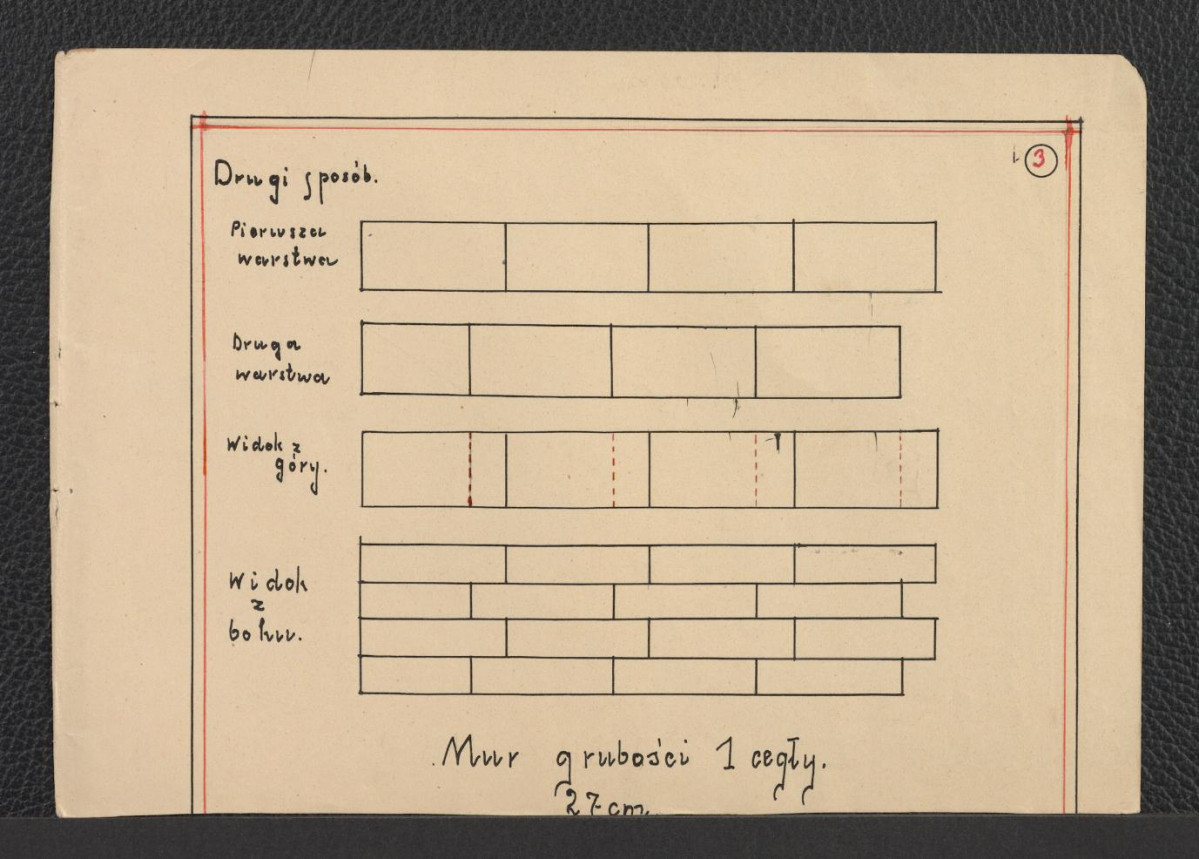 3
Drugi sposób.
Pierwsza
warstwa
Druga
warstwa
Widok z
góry.
Widok
z
boku.
Mur grubości 1 cegły.
27 cm